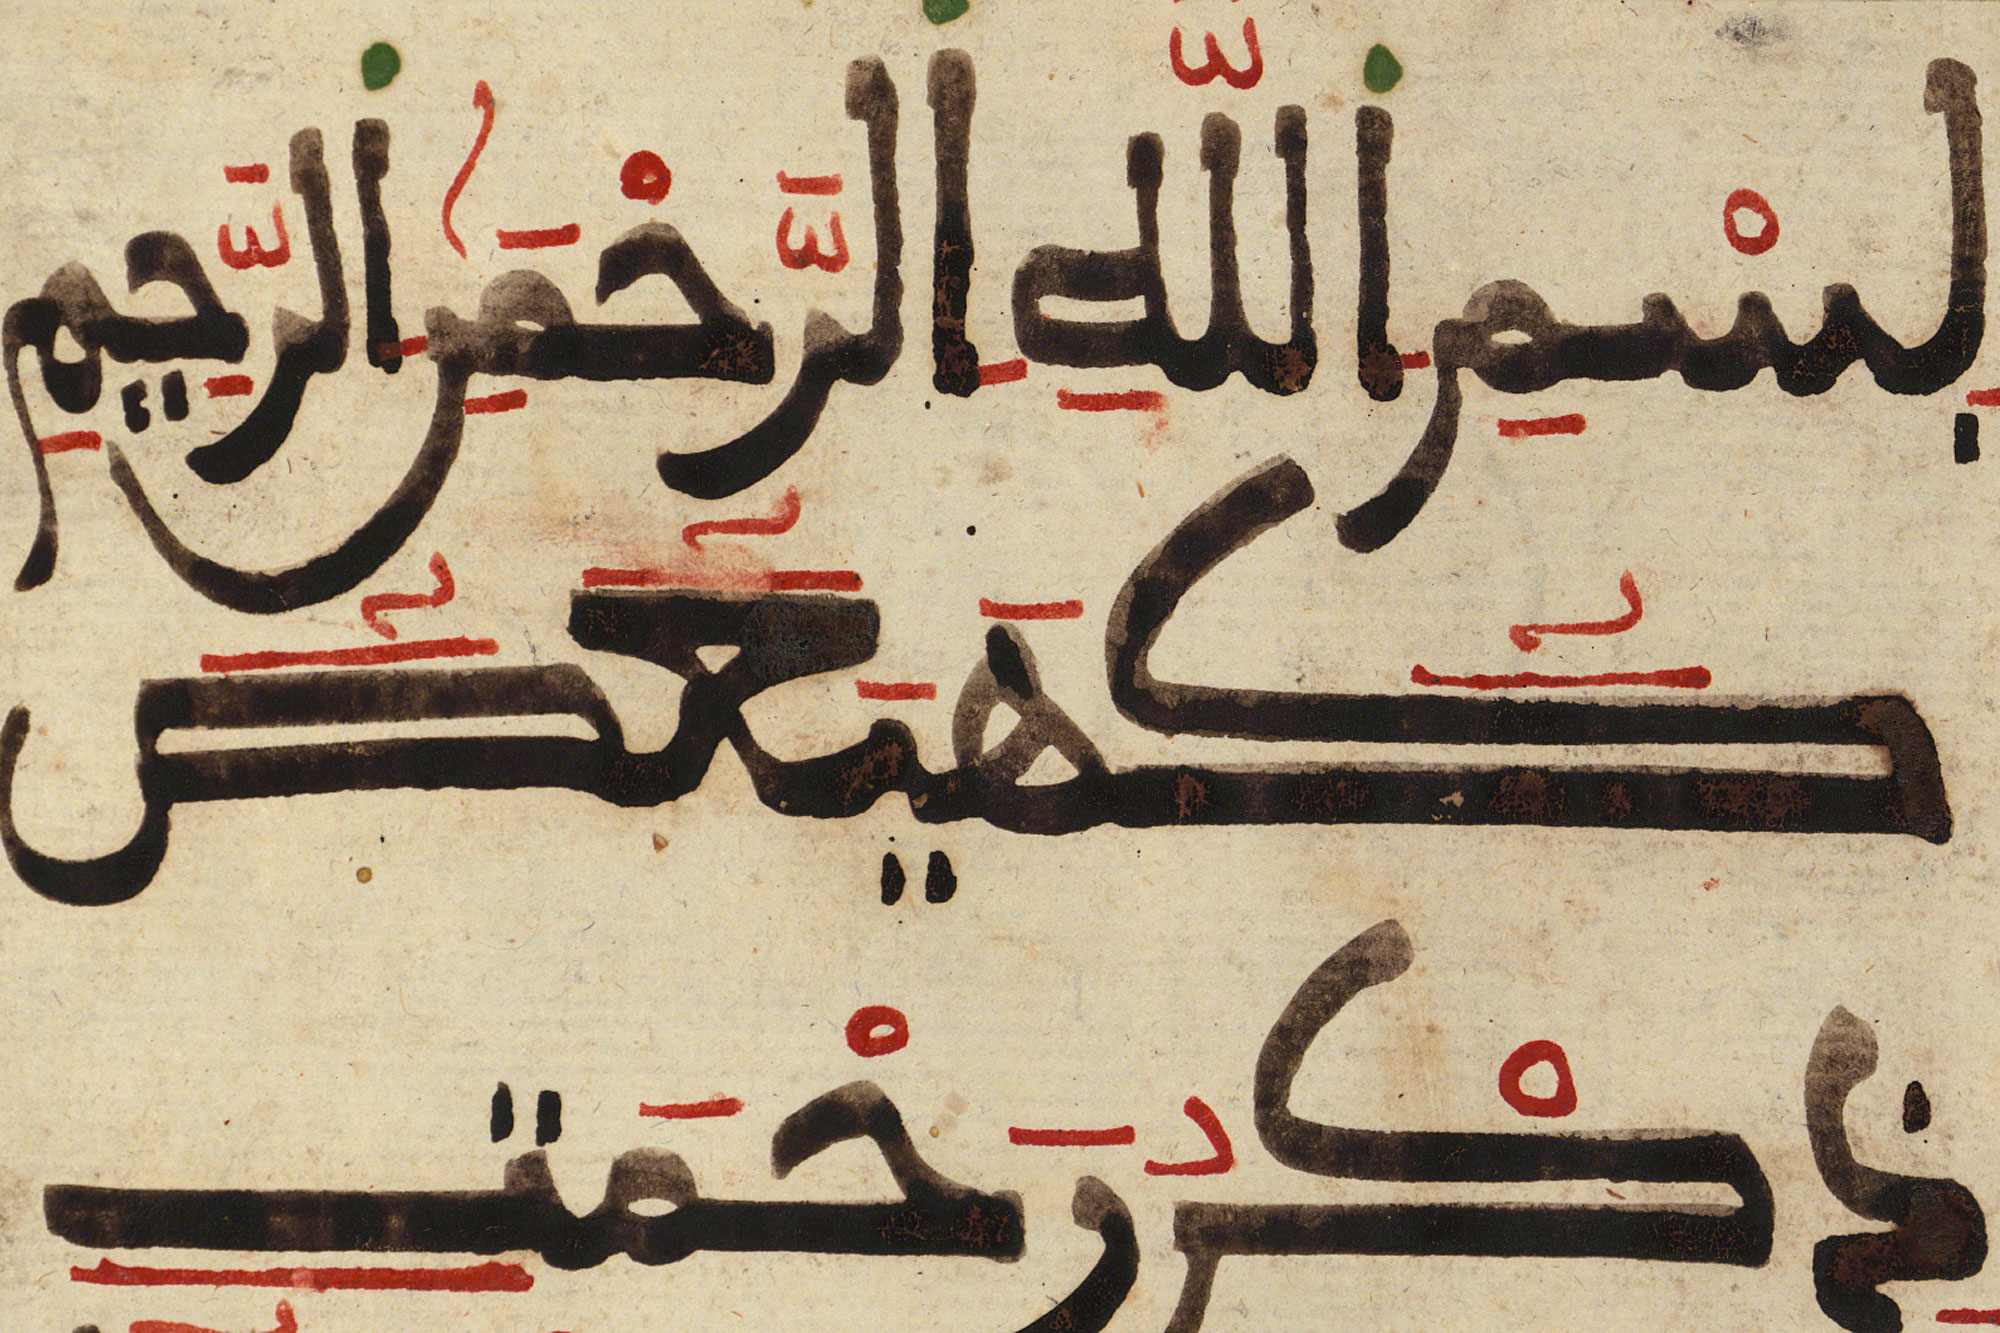 بِسْمِ اِ۬للَّهِ اِ۬لرَّحْمَٰنِ اِ۬لرَّحِيمِ
كٓهَيَعٓصٓ
ذِكْرُ رَحْمَتِ